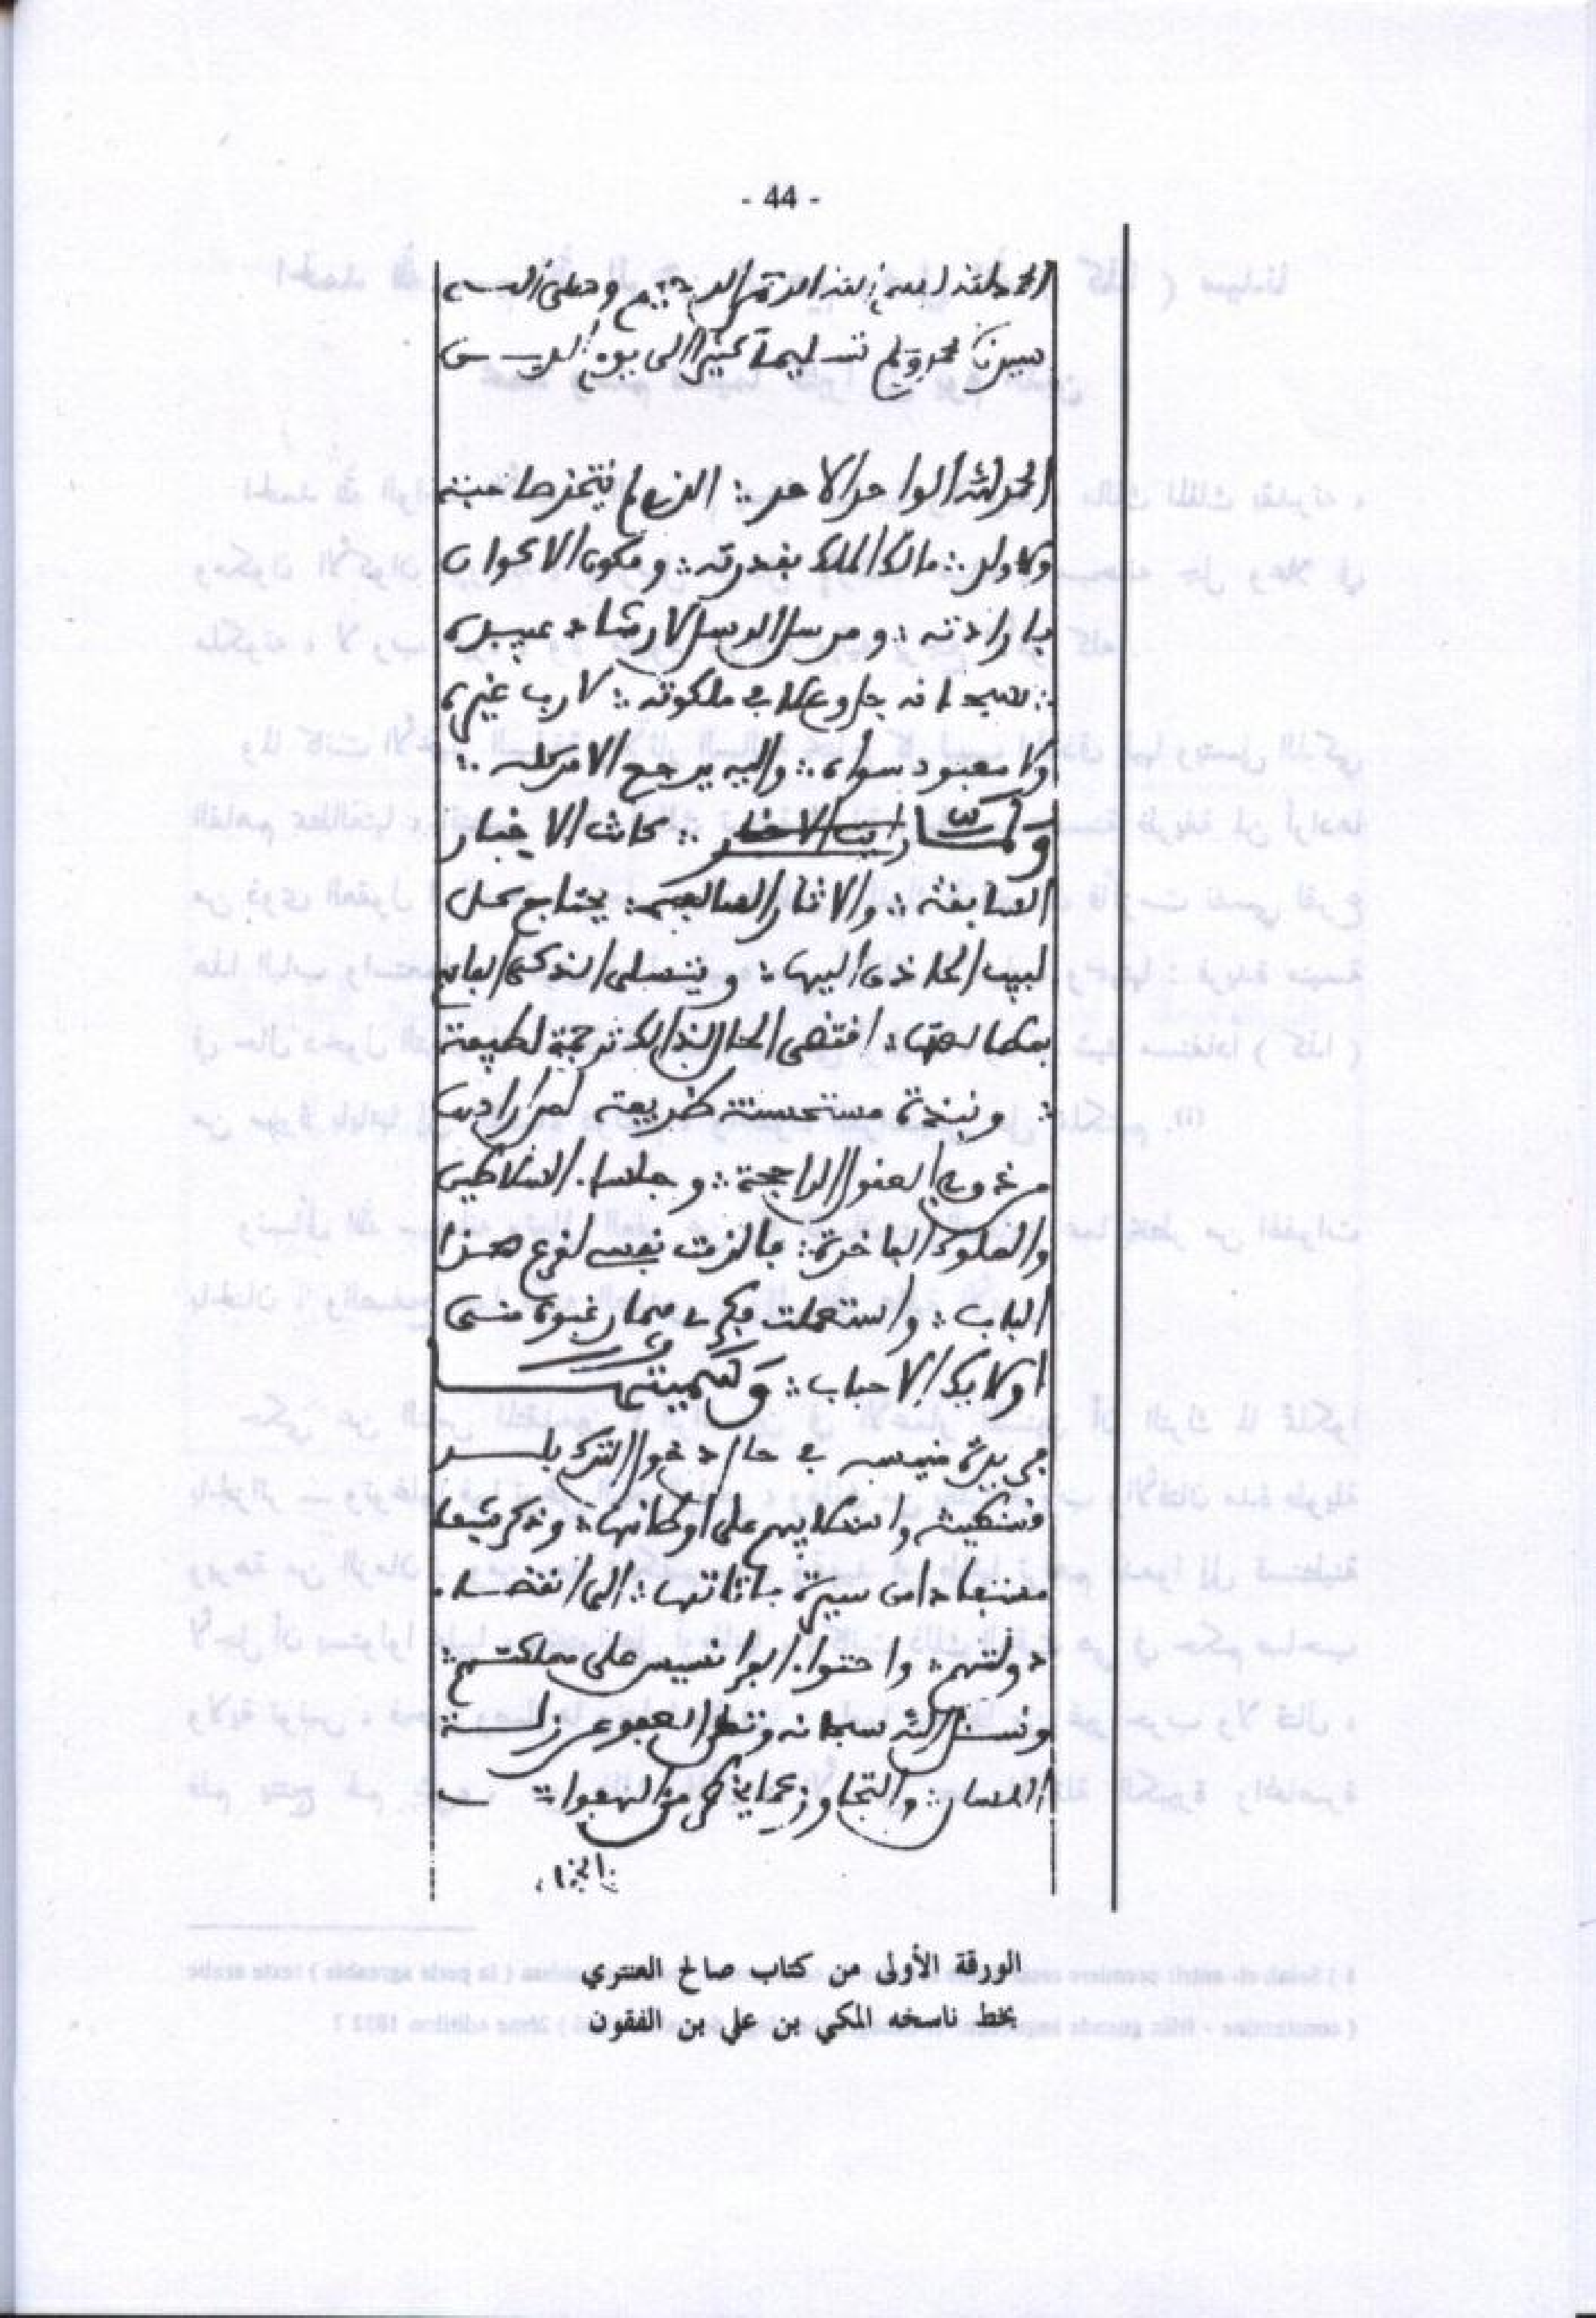 - 44 -
الحمد لله بسم الله الرحمن الرحيم وصلى الله
سيدنا محمد وسلم تسليما كثيرا الى يوم الديـــن
الحمد لله الواحد الاحد ؞ الذي لم يتخذ صاحبة
ولا ولد ؞ مالك الملك بقدرته ؞ ومكون الاكوان
بارادته ؞ ومرسل الرسل لارشاد عبيده
؞ سبحانه جل وعلا في ملكوته ؞ لا رب غيره
ولا معبود سواه ؞ واليه يرجع الامر كله ؞
ولمــا ؞ كانت الاخبار
السابقة ؞ والاثار السالفة ؞ يحتاج كل
لبيب الحاذق اليها ؞ ويتسلى الذكي الفاهم
بمطالعتها ؞ اقتضى الحال لذالك ترجمة لطيفة
؞ ونبذة مستحسنة ظريفة لمن ارادها
من ذوي العقول الراجحة ؞ وجلساء السلاطين
والملوك الفاخرة ؞ فالزمت نفسي لقرع هذا
الباب ؞ واستعملت فكري رغبة مني
الاحباب ؞ وسميتهــا
فريدة منيسه في حال دخول الترك بلــد
قسنطينة واستلايهم على اوطانها ؞ وذكر شيعا
سيرة الى انقضاء
دولتهم ؞ واحتواء الفرانسيس على مملكتهم ؞
ونسئل الله سبحانه وتعلى العفو عن زلــة
اللسان ؞ والتجاوز عما من الهفوات
الورقة الأولى من كتاب صالح العنتري
بخط ناسخه المكي بن علي بن الفقون